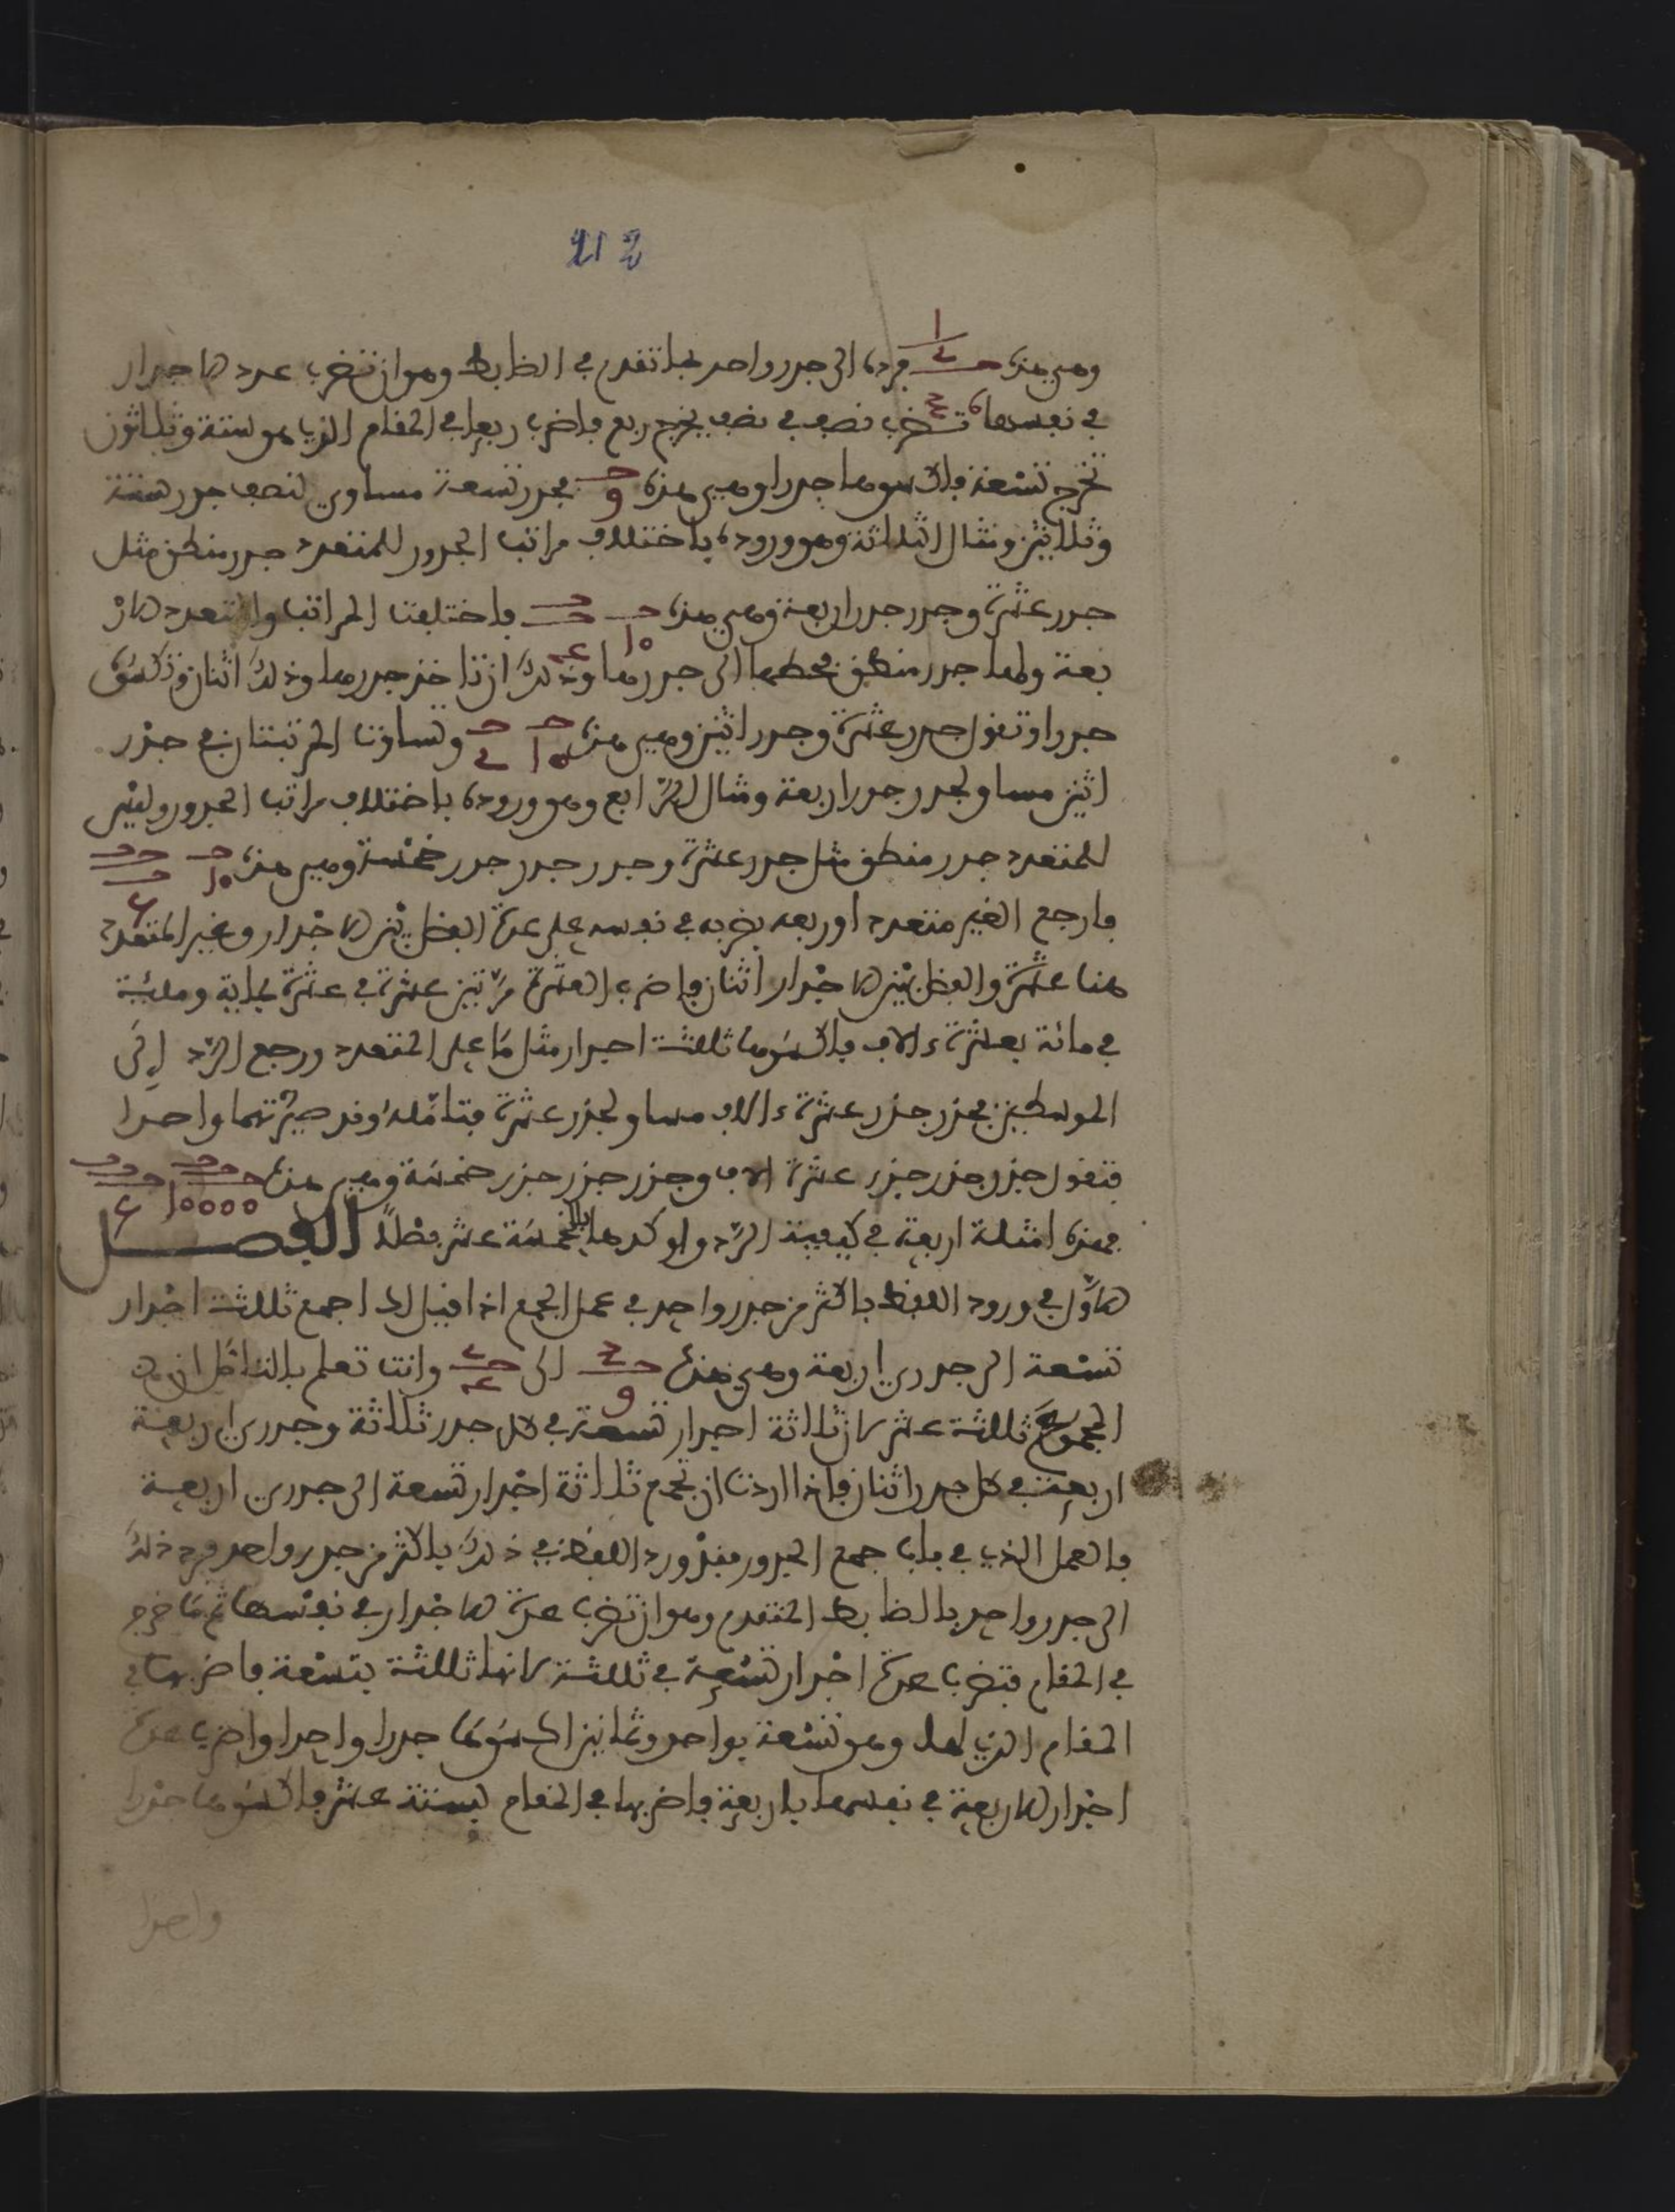 212
وهي هذه فرده الى جدر واحد بما تقدم في الظابط وهو ان تضرب عدد الاجدار
في نفسها تضرب نصف في نصف يخرج ربع فاضرب ربعا في المقام الذي هو ستة وثلاثون
تخرج تسعة فاكسوها جدرا وهي هذه فجدر تسعة مساوي لنصف جدر ستة
وثلاثين ومثال الثلاثة وهو وروده باختلاف مراتب الجدور للمتعدد جدر منطق مثل
جدر عشرة وجدر جدر اربعة وهي هذه 10 فاختلفت المراتب والمتعدد الار
بعة ولها جدر منطق فحطها الى جدرها وذلك ان تاخذ جدرها وذلك اثنان وتكسوه
جدرا وتقول جدر عشرة وجدر اثنين وهي هذه 10 وتساوت المرتبتان في جذر
اثنين مساو لجدر جدر اربعة ومثال الرابع وهو وروده باختلاف مراتب الجدور وليس
للمتعدد جدر منطق مثل جدر عشرة وجدر جدر جدر خمسة وهي هذه 10
فارجع الغير متعدد اوربعه بضربه في نفسه على عدة الفضل بين الاجدار وغير المتعدد
هنا عشرة والفضل بين الاجدار اثنان فاضرب العشرة مرتين عشرة في عشرة بماية ومائة
في مائة بعشرة ءالاف فاكسوها ثلثة اجدار مثل ما على المتعدد ورجع الرد الى
الموسطين فجزر جزر عشرة ءالاف مساو لجزر عشرة فتامله وقد صيرتهما واحدا
فتقول جزر جزر جزر عشرة الاف وجزر جزر جزر خمسة وهي هذه 10000
فهذه امثلة اربعة في كيفية الرد واوكدها بالخمسة عشر فصلا الفصل
الاول في ورود اللفظ باكثر من جدر واحد في عمل الجمع اذا قيل لك اجمع ثلثة اجدار
تسعة الى جدري اربعة وهي هذه الى وانت تعلم بالتامل ان
المجموع ثلثة عشر لان ثلاثة اجدار تسعة في كل جدر ثلاثة وجدري اربعة
اربعة في كل جدر اثنان فاذا اردت ان تجمع ثلاثة اجدار تسعة الى جدري اربعة
فالعمل الذي في باب جمع الجدور فقد ورد اللفظ في ذلك باكثر من جدر واحد فرد ذلك
الى جدر واحد بالظابط المتقدم وهو ان تضرب عدة الاجدار في نفسها ثم ما خرج
في المقام فتضرب عدة اجدار تسعة في ثلثة لانها ثلثة بتسعة فاضربها في
المقام الذي لها وهو تسعة بواحد وثمانين اكسوها جدرا واحدا واضرب عدة
اجدار الاربعة في نفسها باربعة فاضربها في المقام بستة عشر فاكسوها جدرا
واحدا